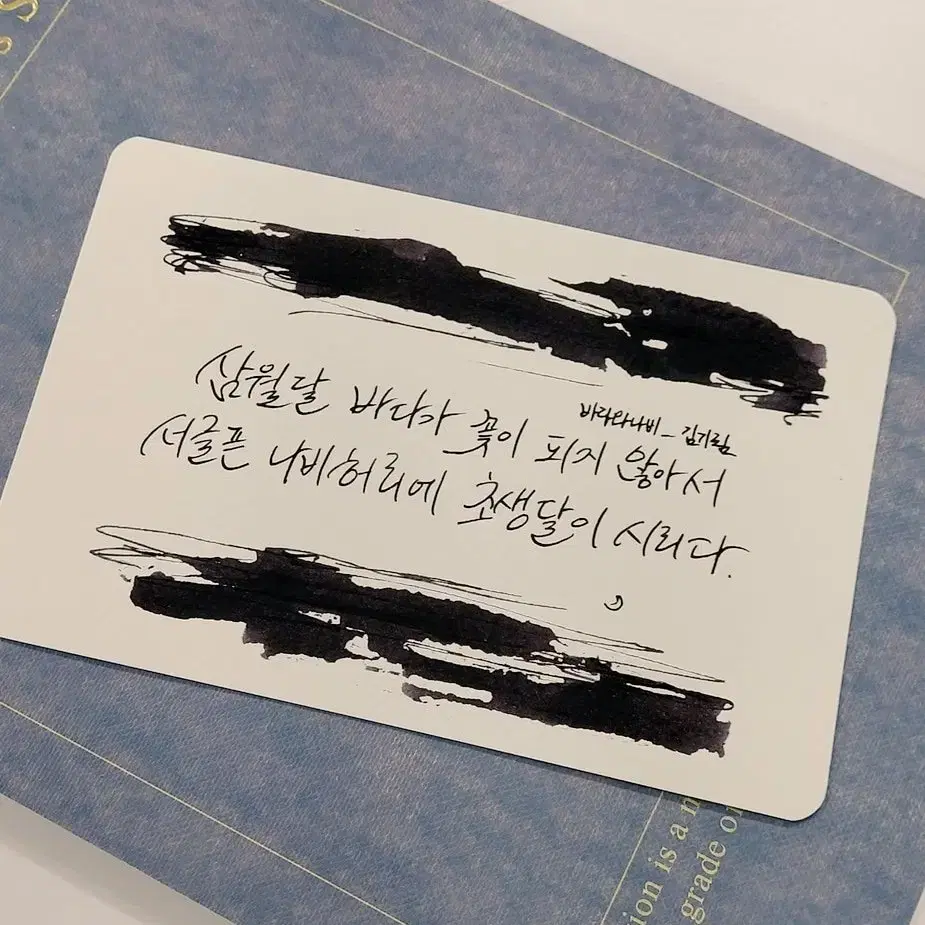 바다와나비 - 김기림
삼월달 바다가 꽃이 피지 않아서
서글픈 나비허리에 초생달이 시리다.
ion is a
grade